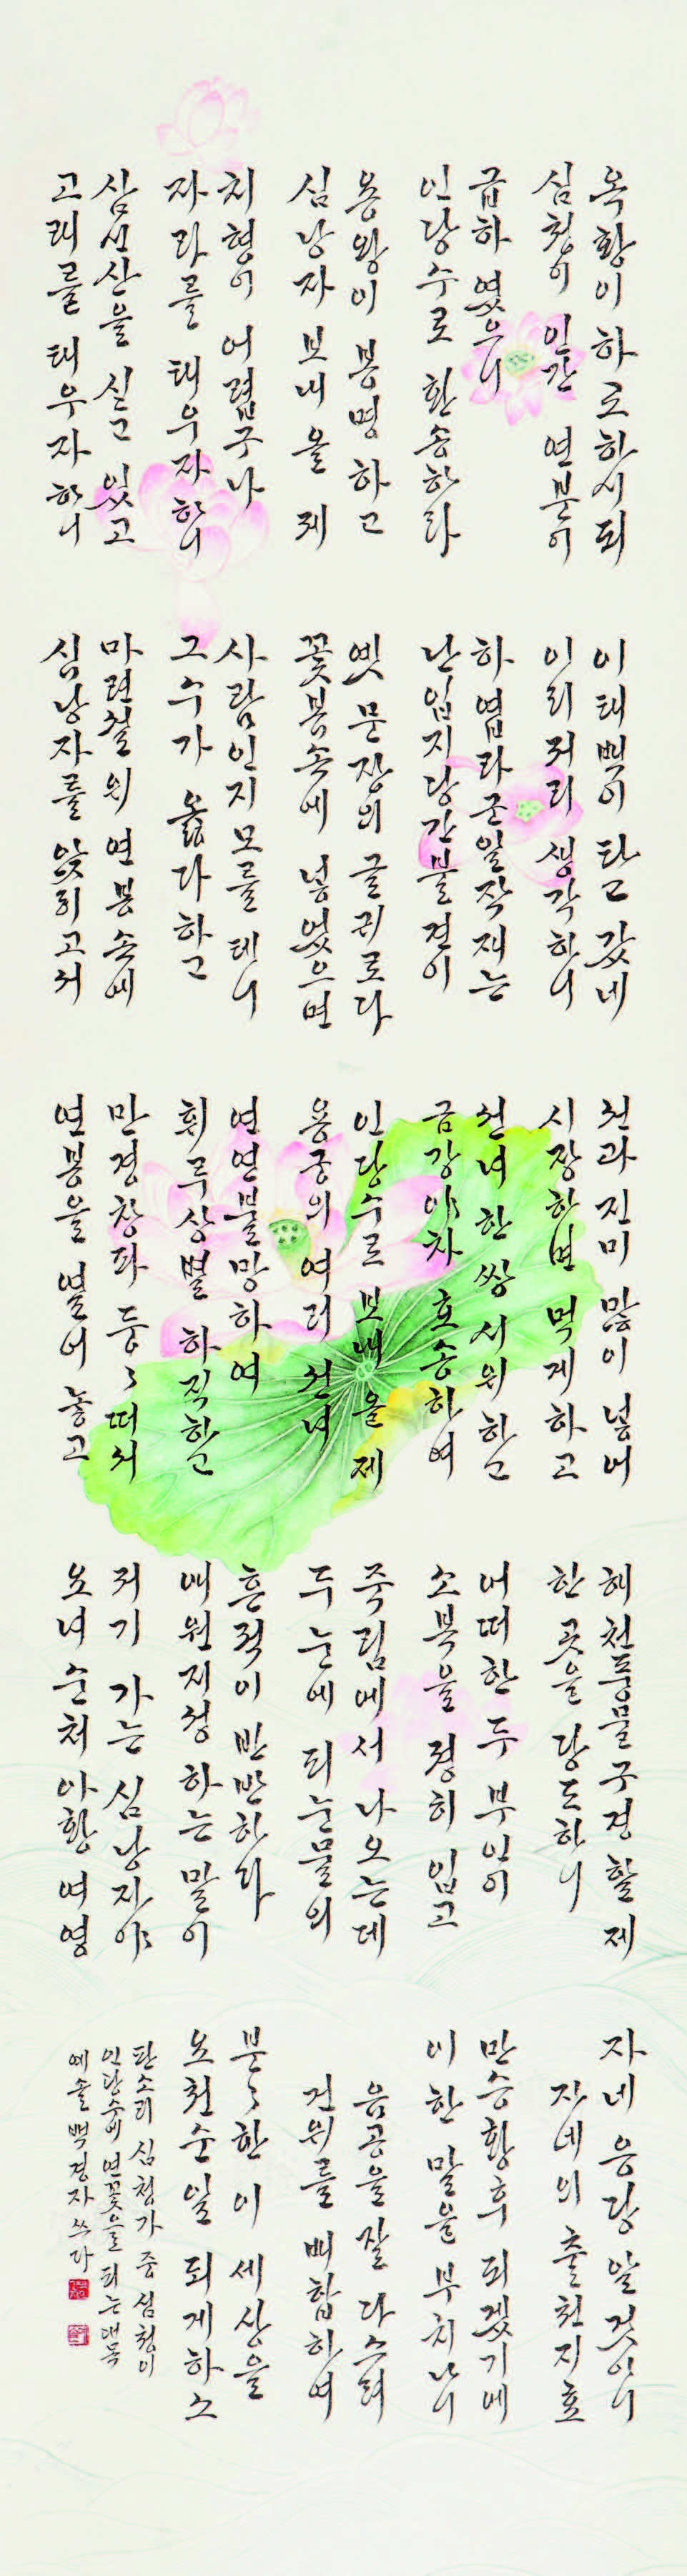 옥황이 하교하시되
심청이 인간 연분이
급하였으니
인당수로 환송하라
용왕이 봉명하고
심낭자 보내올 제
치형이 어렵구나
자라를 태우자 하니
삼신산을 싣고 있고
고래를 태우자 하니
이태백이 타고 갔네
이리저리 생각하니
하엽라군일작재는
난입지당간불견이
옛 문장의 글귀로다
꽃봉 속에 넣었으면
사람인지 모를 테니
그 수가 옳다 하고
연봉 속에
심낭자를 앉히고서
선과진미 많이 넣어
시장하면 먹게 하고
선녀 한 쌍 시위하고
금강야차 호송하여
인당수로 보내올 제
용궁의 여러 선녀
연연불망하여
휘루상별 하직하고
만경창파 둥〻 떠서
연봉을 열어 놓고
해천풍물 구경할 제
한 곳을 당도하니
어떠한 두 부인이
소복을 정히 입고
죽림에서 나오는데
두 눈에 피눈물의
흔적이 반반하다
애원지정 하는 말이
저기 가는 심낭자야
요녀순처 아황 여영
자네 응당 알 것이니
자네의 출천지효
만승황후 되겠기에
이 한 말을 부치나니
음공을 잘 다스려
건위를 배합하여
분〻한 이 세상을
요천순일 되게 하소
판소리 심청가 중 심청이
인당수에 연꽃을 피는 대목
예솔 백경자 쓰다